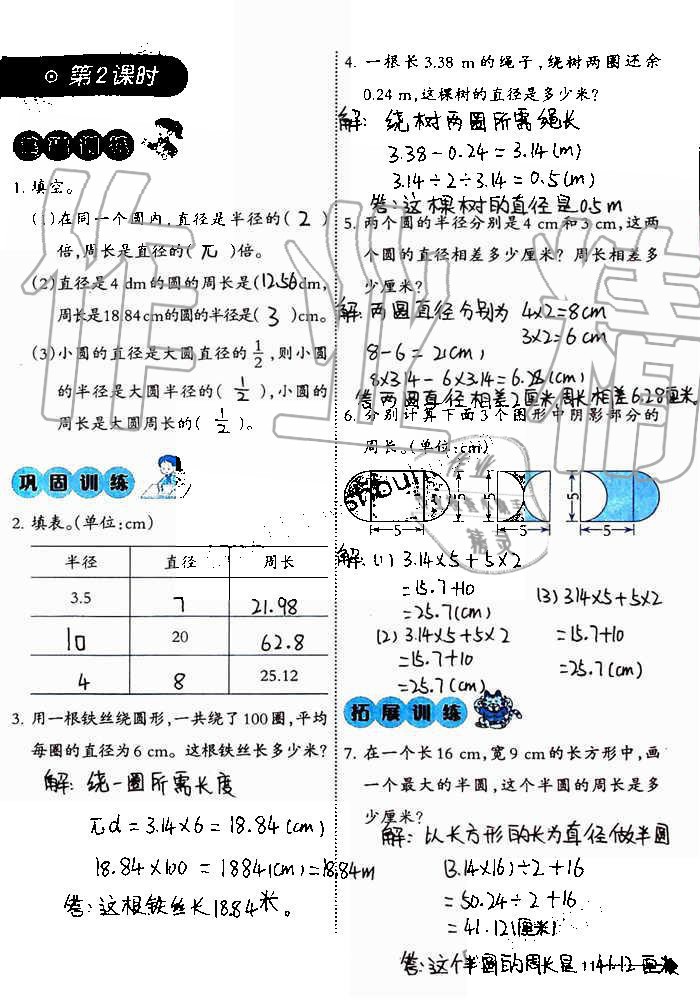 第2课时
基础训练
1. 填空。
(1)在同一个圆内,直径是半径的( 2 )
倍,周长是直径的( π )倍。
(2)直径是4 dm的圆的周长是(12.56)dm,
周长是18.84 cm的圆的半径是( 3 )cm。
(3)小圆的直径是大圆直径的1/2,则小圆
的半径是大圆半径的( 1/2 ),小圆的
周长是大圆周长的( 1/2 )。
巩固训练
2. 填表。(单位:cm)
半径 直径 周长
3.5 7 21.98
10 20 62.8
4 8 25.12
3. 用一根铁丝绕圆形,一共绕了100圈,平均
每圈的直径为6 cm。这根铁丝长多少米?
解:绕一圈所需长度
πd=3.14×6=18.84(cm)
18.84×100=1884(cm)=18.84m
答:这根铁丝长18.84米。
4. 一根长3.38 m的绳子,绕树两圈还余
0.24 m,这棵树的直径是多少米?
解:绕树两圈所需绳长
3.38-0.24=3.14(m)
3.14÷2÷3.14=0.5(m)
答:这棵树的直径是0.5m
5. 两个圆的半径分别是4 cm和3 cm,这两
个圆的直径相差多少厘米?周长相差多
少厘米?
解:两圆直径分别为 4×2=8cm
3×2=6cm
8-6=2(cm)
8×3.14-6×3.14=6.28(cm)
答:两圆直径相差2厘米周长相差6.28厘米
6. 分别计算下面3个图形中阴影部分的
周长。(单位:cm)
5 5 5
5 5 5
解:(1) 3.14×5+5×2
=15.7+10
=25.7(cm)
(2) 3.14×5+5×2
=15.7+10
=25.7(cm)
(3) 3.14×5+5×2
=15.7+10
=25.7(cm)
拓展训练
7. 在一个长16 cm,宽9 cm的长方形中,画
一个最大的半圆,这个半圆的周长是多
少厘米?
解:以长方形的长为直径做半圆
(3.14×16)÷2+16
=50.24÷2+16
=41.12(厘米)
答:这个半圆的周长是41.12厘米
作业精